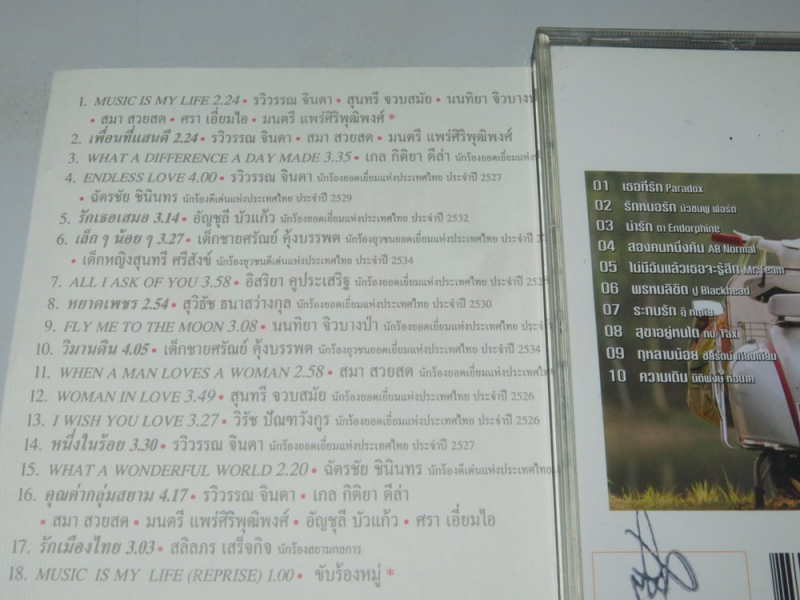 1. MUSIC IS MY LIFE 2.24 • รวิวรรณ จินดา • สุนทรี จวบสมัย • นนทิยา จิวบาง
• สมา สวยสด • ศรา เอี่ยมไอ • มนตรี แพร่ศิริพุฒิพงศ์ *
2. เพื่อนที่แสนดี 2.24 • รวิวรรณ จินดา • สมา สวยสด • มนตรี แพร่ศิริพุฒิพงศ์
3. WHAT A DIFFERENCE A DAY MADE 3.35 • เกล กิติยา ดีล่า นักร้องยอดเยี่ยมแห่ง
4. ENDLESS LOVE 4.00 • รวิวรรณ จินดา นักร้องยอดเยี่ยมแห่งประเทศไทย ประจำปี 2527
• ฉัตรชัย ชินินทร นักร้องดีเด่นแห่งประเทศไทย ประจำปี 2529
5. รักเธอเสมอ 3.14 • อัญชุลี บัวแก้ว นักร้องยอดเยี่ยมแห่งประเทศไทย ประจำปี 2532
6. เล็ก ๆ น้อย ๆ 3.27 • เด็กชายศรัณย์ คุ้งบรรพต นักร้องยุวชนยอดเยี่ยมแห่งประเทศไทย ประจำปี
• เด็กหญิงสุนทรี ศรีสังข์ นักร้องยุวชนดีเด่นแห่งประเทศไทย ประจำปี 2534
7. ALL I ASK OF YOU 3.58 • อิสริยา คูประเสริฐ นักร้องยอดเยี่ยมแห่งประเทศไทย ประจำปี
8. หยาดเพชร 2.54 • สุวิธัช ธนาสว่างกุล นักร้องยอดเยี่ยมแห่งประเทศไทย ประจำปี 2530
9. FLY ME TO THE MOON 3.08 • นนทิยา จิวบางป่า นักร้องยอดเยี่ยมแห่งประเทศไทย ประจำ
10. วิมานดิน 4.05 • เด็กชายศรัณย์ คุ้งบรรพต นักร้องยุวชนยอดเยี่ยมแห่งประเทศไทย ประจำปี 2534
11. WHEN A MAN LOVES A WOMAN 2.58 • สมา สวยสด นักร้องยอดเยี่ยมแห่งประเทศไทย
12. WOMAN IN LOVE 3.49 • สุนทรี จวบสมัย นักร้องยอดเยี่ยมแห่งประเทศไทย ประจำปี 2526
13. I WISH YOU LOVE 3.27 • วิรัช ปัณฑวังกูร นักร้องยอดเยี่ยมแห่งประเทศไทย ประจำปี 2526
14. หนึ่งในร้อย 3.30 • รวิวรรณ จินดา นักร้องยอดเยี่ยมแห่งประเทศไทย ประจำปี 2527
15. WHAT A WONDERFUL WORLD 2.20 • ฉัตรชัย ชินินทร นักร้องดีเด่นแห่งประเทศไทย
16. คุณค่ากลุ่มสยาม 4.17 • รวิวรรณ จินดา • เกล กิติยา ดีล่า
• สมา สวยสด • มนตรี แพร่ศิริพุฒิพงศ์ • อัญชุลี บัวแก้ว • ศรา เอี่ยมไอ
17. รักเมืองไทย 3.03 • สลิลภร เสร็จกิจ นักร้องสยามกลการ
18. MUSIC IS MY LIFE (REPRISE) 1.00 • ขับร้องหมู่ *
01 เธอที่รัก Paradox
02 รักหมดรัก บัวชมพู ฟอร์ด
03 น่ารัก ดา Endorphine
04 สองคนหนึ่งคืน AB Normal
05 ไม่มีฉันแล้วเธอจะรู้สึก Mr.Team
06 พรหมลิขิต ปู Blackhead
07 ระทมรัก
08 สุขาอยู่หนใด Taxi
09 กุหลาบน้อย
10 ความเดิม